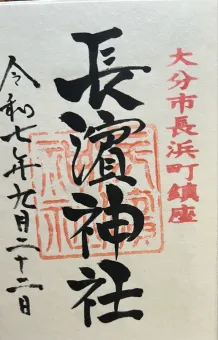 大分市長浜町鎮座
長濵神社
令和七年九月二十二日